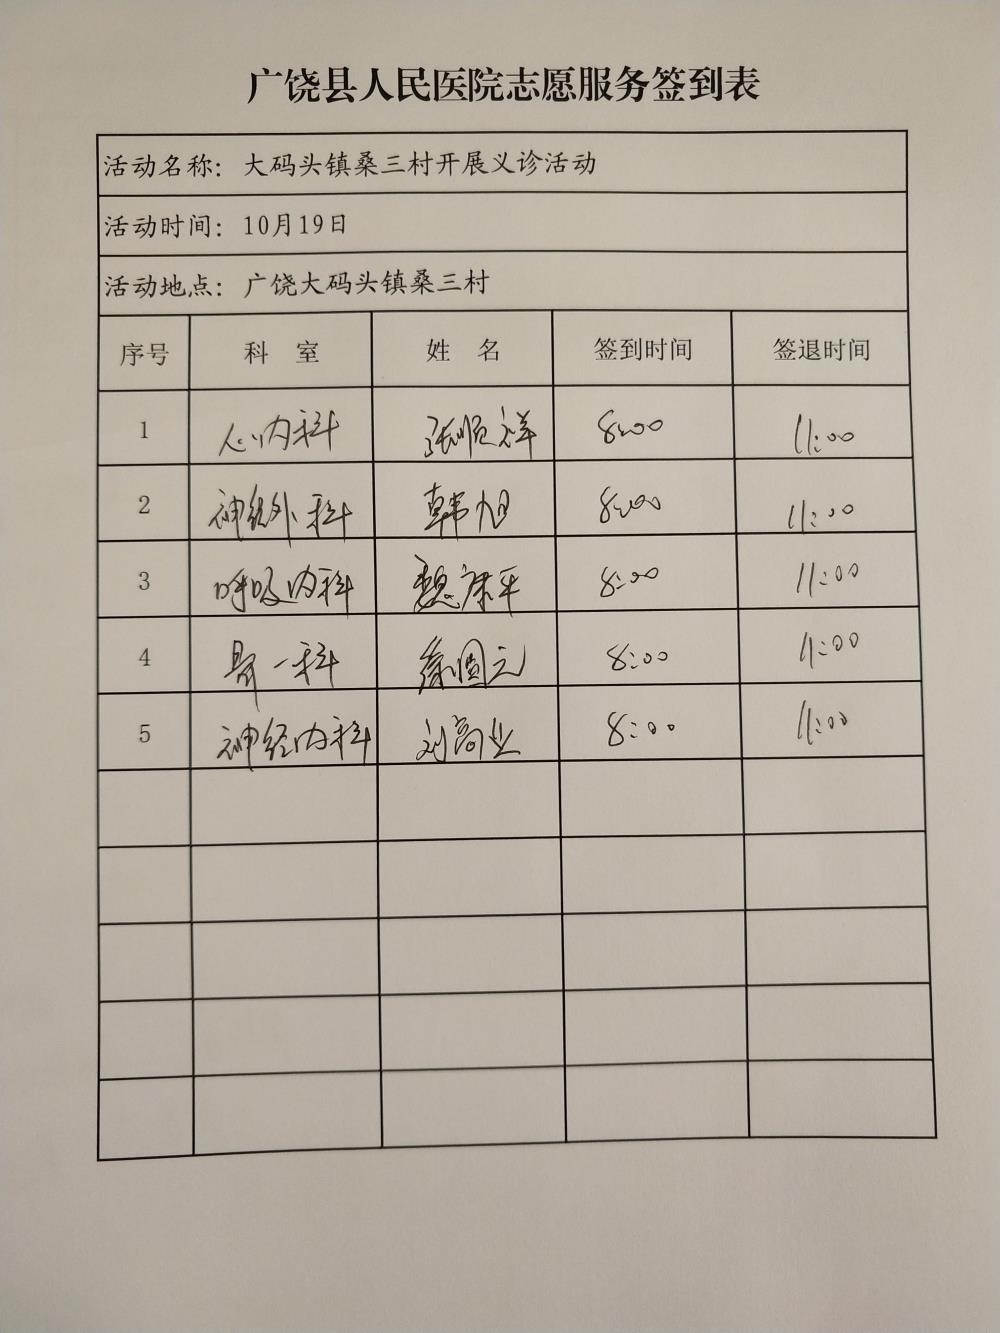 广饶县人民医院志愿服务签到表
活动名称：大码头镇桑三村开展义诊活动
活动时间：10月19日
活动地点：广饶大码头镇桑三村
序号 科 室 姓 名 签到时间 签退时间
1 心内科 张顺祥 8:00 11:00
2 神经外科 韩旭 8:00 11:00
3 呼吸内科 魏康平 8:00 11:00
4 骨一科 8:00 11:00
5 神经内科 刘高业 8:00 11:00